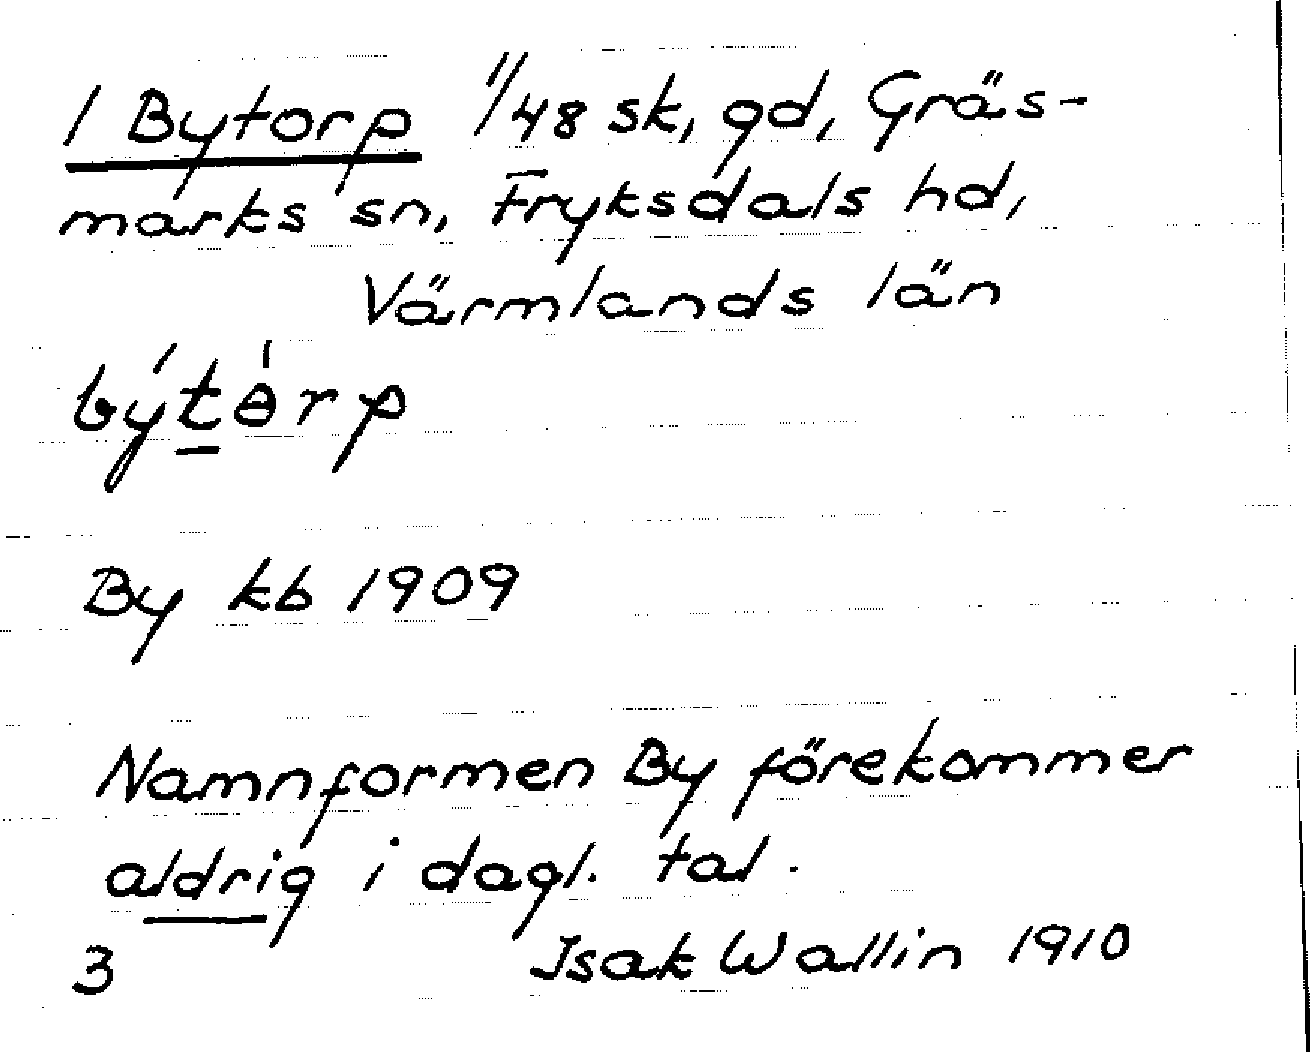 1 Bytorp 11/48 sk, gd, Gräs-
marks sn, Fryksdals hd,
Värmlands län
býtɵ̀rp
By kb 1909
Namnformen By förekommer
aldrig i dagl. tal.
3 Isak Wallin 1910